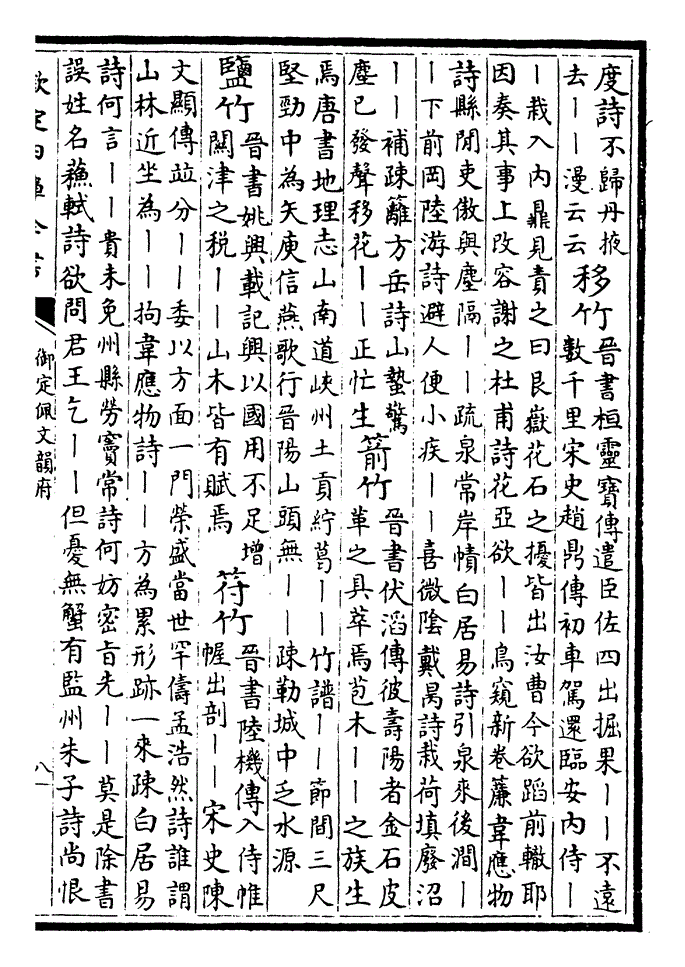 度詩不歸丹掖
去丨丨漫云云
移竹
晉書桓靈寶傳遣臣佐四出掘果丨丨不遠
數千里宋史趙鼎傳初車駕還臨安内侍丨
丨栽入内鼎見責之曰艮嶽花石之擾皆出汝曹今欲蹈前轍耶
因奏其事上改容謝之杜甫詩花亞欲丨丨鳥窺新卷簾韋應物
詩縣閒吏傲與塵隔丨丨疏泉常岸幘白居易詩引泉來後澗丨
丨下前岡陸游詩避人便小疾丨丨喜微陰戴昺詩栽荷填廢沼
丨丨補疎籬方岳詩山蟄驚
塵已發聲移花丨丨正忙生
箭竹
晉書伏滔傳彼壽陽者金石皮
革之具萃焉苞木丨丨之族生
焉唐書地理志山南道峽州土貢紵葛丨丨竹譜丨丨節間三尺
堅勁中為矢庾信燕歌行晉陽山頭無丨丨疎勒城中乏水源
鹽竹
晉書姚興載記興以國用不足增
關津之税丨丨山木皆有賦焉
符竹
晉書陸機傳入侍帷
幄出剖丨丨宋史陳
文顯傳竝分丨丨委以方面一門榮盛當世罕儔孟浩然詩誰謂
山林近坐為丨丨拘韋應物詩丨丨方為累形跡一來疎白居易
詩何言丨丨貴未免州縣勞竇常詩何妨密旨先丨丨莫是除書
誤姓名蘓軾詩欲問君王乞丨丨但憂無蟹有監州朱子詩尚恨
欽定四庫全書
御定佩文韻府